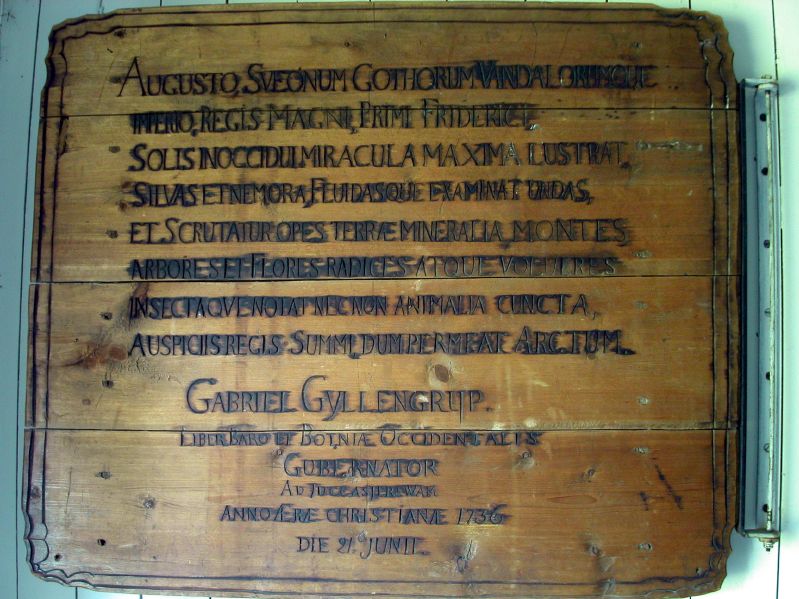 AUGUSTO, SVEONUM GOTHORUM VANDALORUMQUE
IMPERIO, REGIS MAGNI, PRIMI FRIDERICI,
SOLIS INOCCIDUI MIRACULA MAXIMA LUSTRAT,
SILVAS ET NEMORA, FLUIDASQUE EXAMINAT UNDAS,
ET SCRUTATUR OPES TERRÆ MINERALIA MONTES
ARBORES ET FLORES RADICES ATQUE VOLUCRES
INSECTAQVE NOTAT NEC NON ANIMALIA CUNCTA,
AUSPICIIS REGIS SUMMI, DUM PERMEAT ARCTUM.
GABRIEL GYLLENGRIJP.
LIBER BARO ET BOTNIÆ OCCIDENTALIS
GUBERNATOR
AD JUCCASJERFWAM
ANNO ÆRÆ CHRISTIANÆ 1736
DIE 21. JUNII.